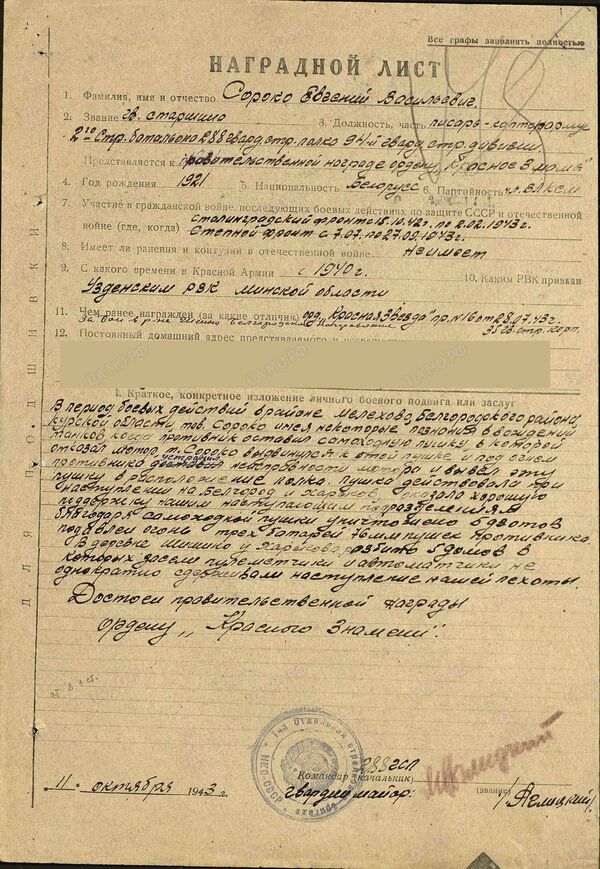 Все графы заполнять полностью
НАГРАДНОЙ ЛИСТ
1. Фамилия, имя и отчество Сороко Евгений Васильевич.
2. Звание гв. старшина 3. Должность, часть писарь-
2го Стр. батальона 288 гвард. стр. полка 94-й гвард. стр. дивизии.
Представляется к правительственной награде ордену "Красное Знамя"
4. Год рождения 1921 5. Национальность Белорусс 6. Партийность чл. ВЛКСМ
7. Участие в гражданской войне, последующих боевых действиях по защите СССР и отечественной
войне (где, когда) Сталинградский фронт с 18.10.42г. по 2.02.1943г.
Степной фронт с 7.07. по 27.09.1943г.
8. Имеет ли ранения и контузии в отечественной войне не имеет
9. С какого времени в Красной Армии с 1940г. 10. Каким РВК призван
Узденским РВК Минской области
11. Чем ранее награжден (за какие отличия) орд. "Красная Звезда" пр. №16 от 28.07.43г.
За бои в р-не Белгородское направление 35 гв. стр. корп.
12. Постоянный домашний адрес представляемого к награждению
I. Краткое, конкретное изложение личного боевого подвига или заслуг
В период боевых действий в районе Мелехово Белгородского района
Курской области, тов. Сороко имея некоторые познания в вождении
танков, когда противник оставил самоходную пушку, в которой
отказал мотор, т. Сороко выдвинулся к этой пушке и под огнем
противника устранил неисправности мотора и вывел эту
пушку в расположение полка. Пушка действовала при
наступлении на Белгород и Харьков, оказала хорошую
поддержку нашим наступающим подразделениям
благодаря самоходной пушки уничтожено 5 дзотов
подавлен огонь трех батарей 76 мм пушек противника.
В деревне у Харькова разбито 5 домов в
которых засели пулеметчики и автоматчики не
однократно сдерживали наступление нашей пехоты.
Достоен правительственной награды
ордену "Красного Знамени".
288 гсп
Командир (начальник)
Гвардии майор:
(звание)
11. октября 1943 г.
ДЛЯ ПОДШИВКИ